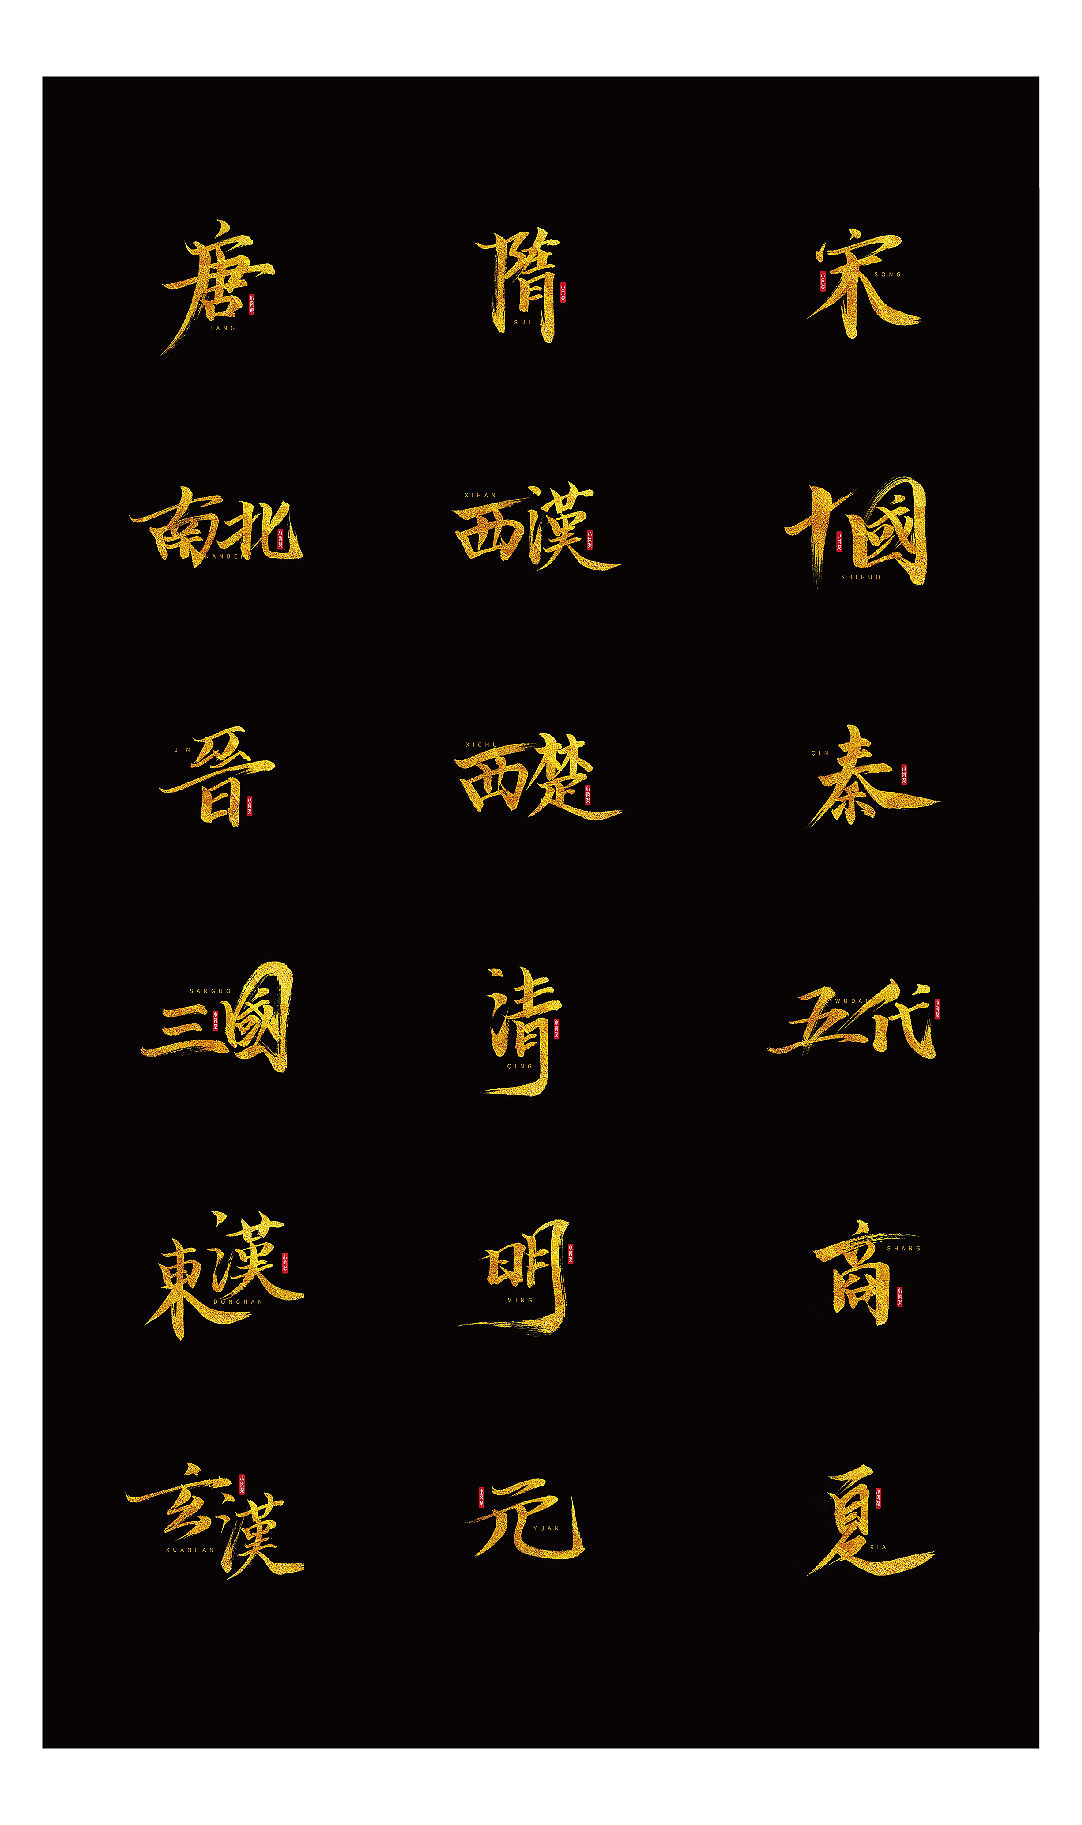 唐
TANG
隋
SUI
宋
SONG
南北
NANBEI
XIHAN
西漢
十國
SHIGUO
JIN
晉
XICHU
西楚
QIN
秦
SANGUO
三國
清
QING
五代
WUDAI
東漢
DONGHAN
明
MING
商
SHANG
玄漢
XUANHAN
元
YUAN
夏
XIA